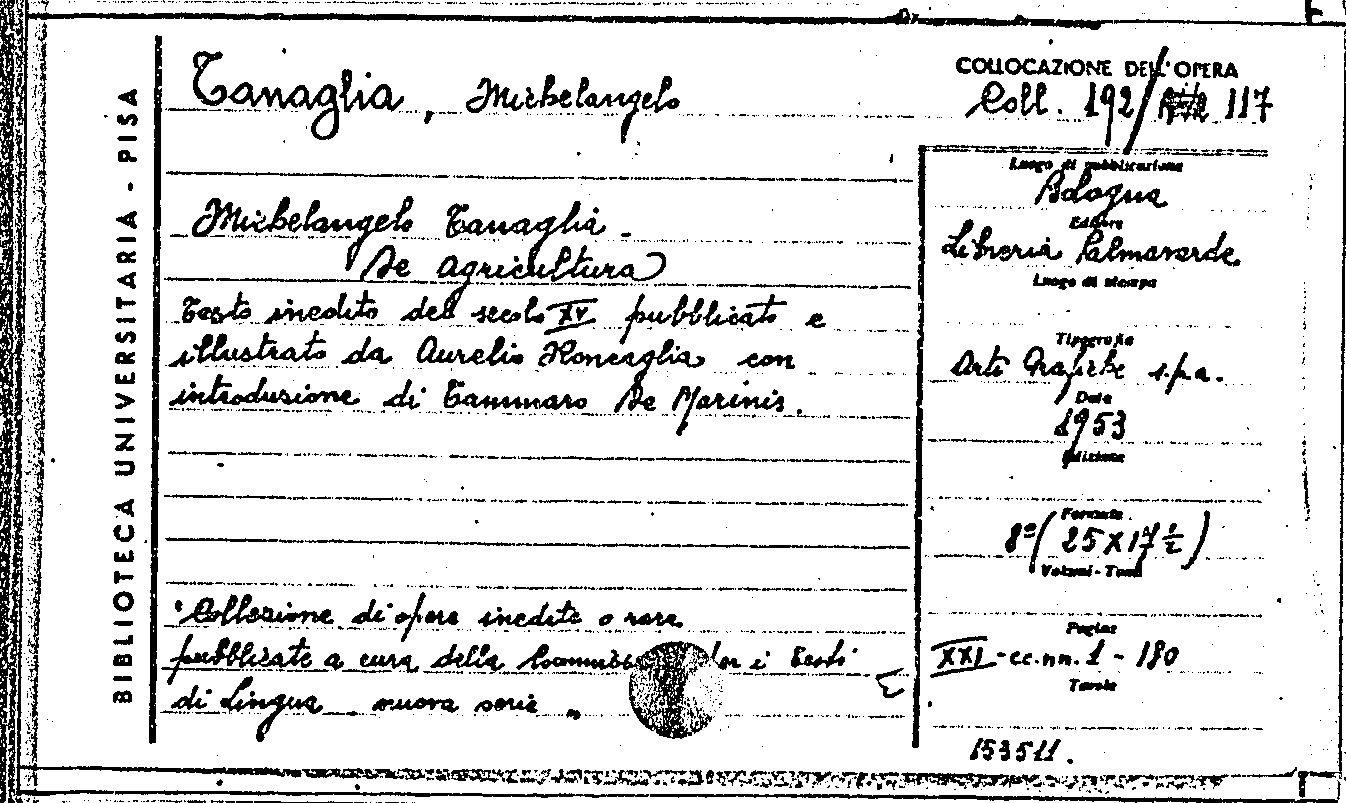 BIBLIOTECA UNIVERSITARIA - PISA
Tanaglia, Michelangelo
COLLOCAZIONE DELL'OPERA
Coll. 192/ 117
Michelangelo Tanaglia.
De Agricultura
Testo inedito del secolo XV pubblicato e
illustrato da Aurelio Roncaglia con
introduzione di Tammaro De Marinis.
"Collezione di opere inedite o rare
pubblicate a cura della per i Testi
di Lingua nuova serie „
Luogo di pubblicazione
Bologna
Editore
Libreria Palmaverde
Luogo di stampa
Tipografia
Arti Grafiche s.p.a.
Data
1953
Edizione
Formato
8º (25X17½)
Volumi - Tomi
Pagine
XXI - cc.nn. 1 - 180
Tavole
153511.